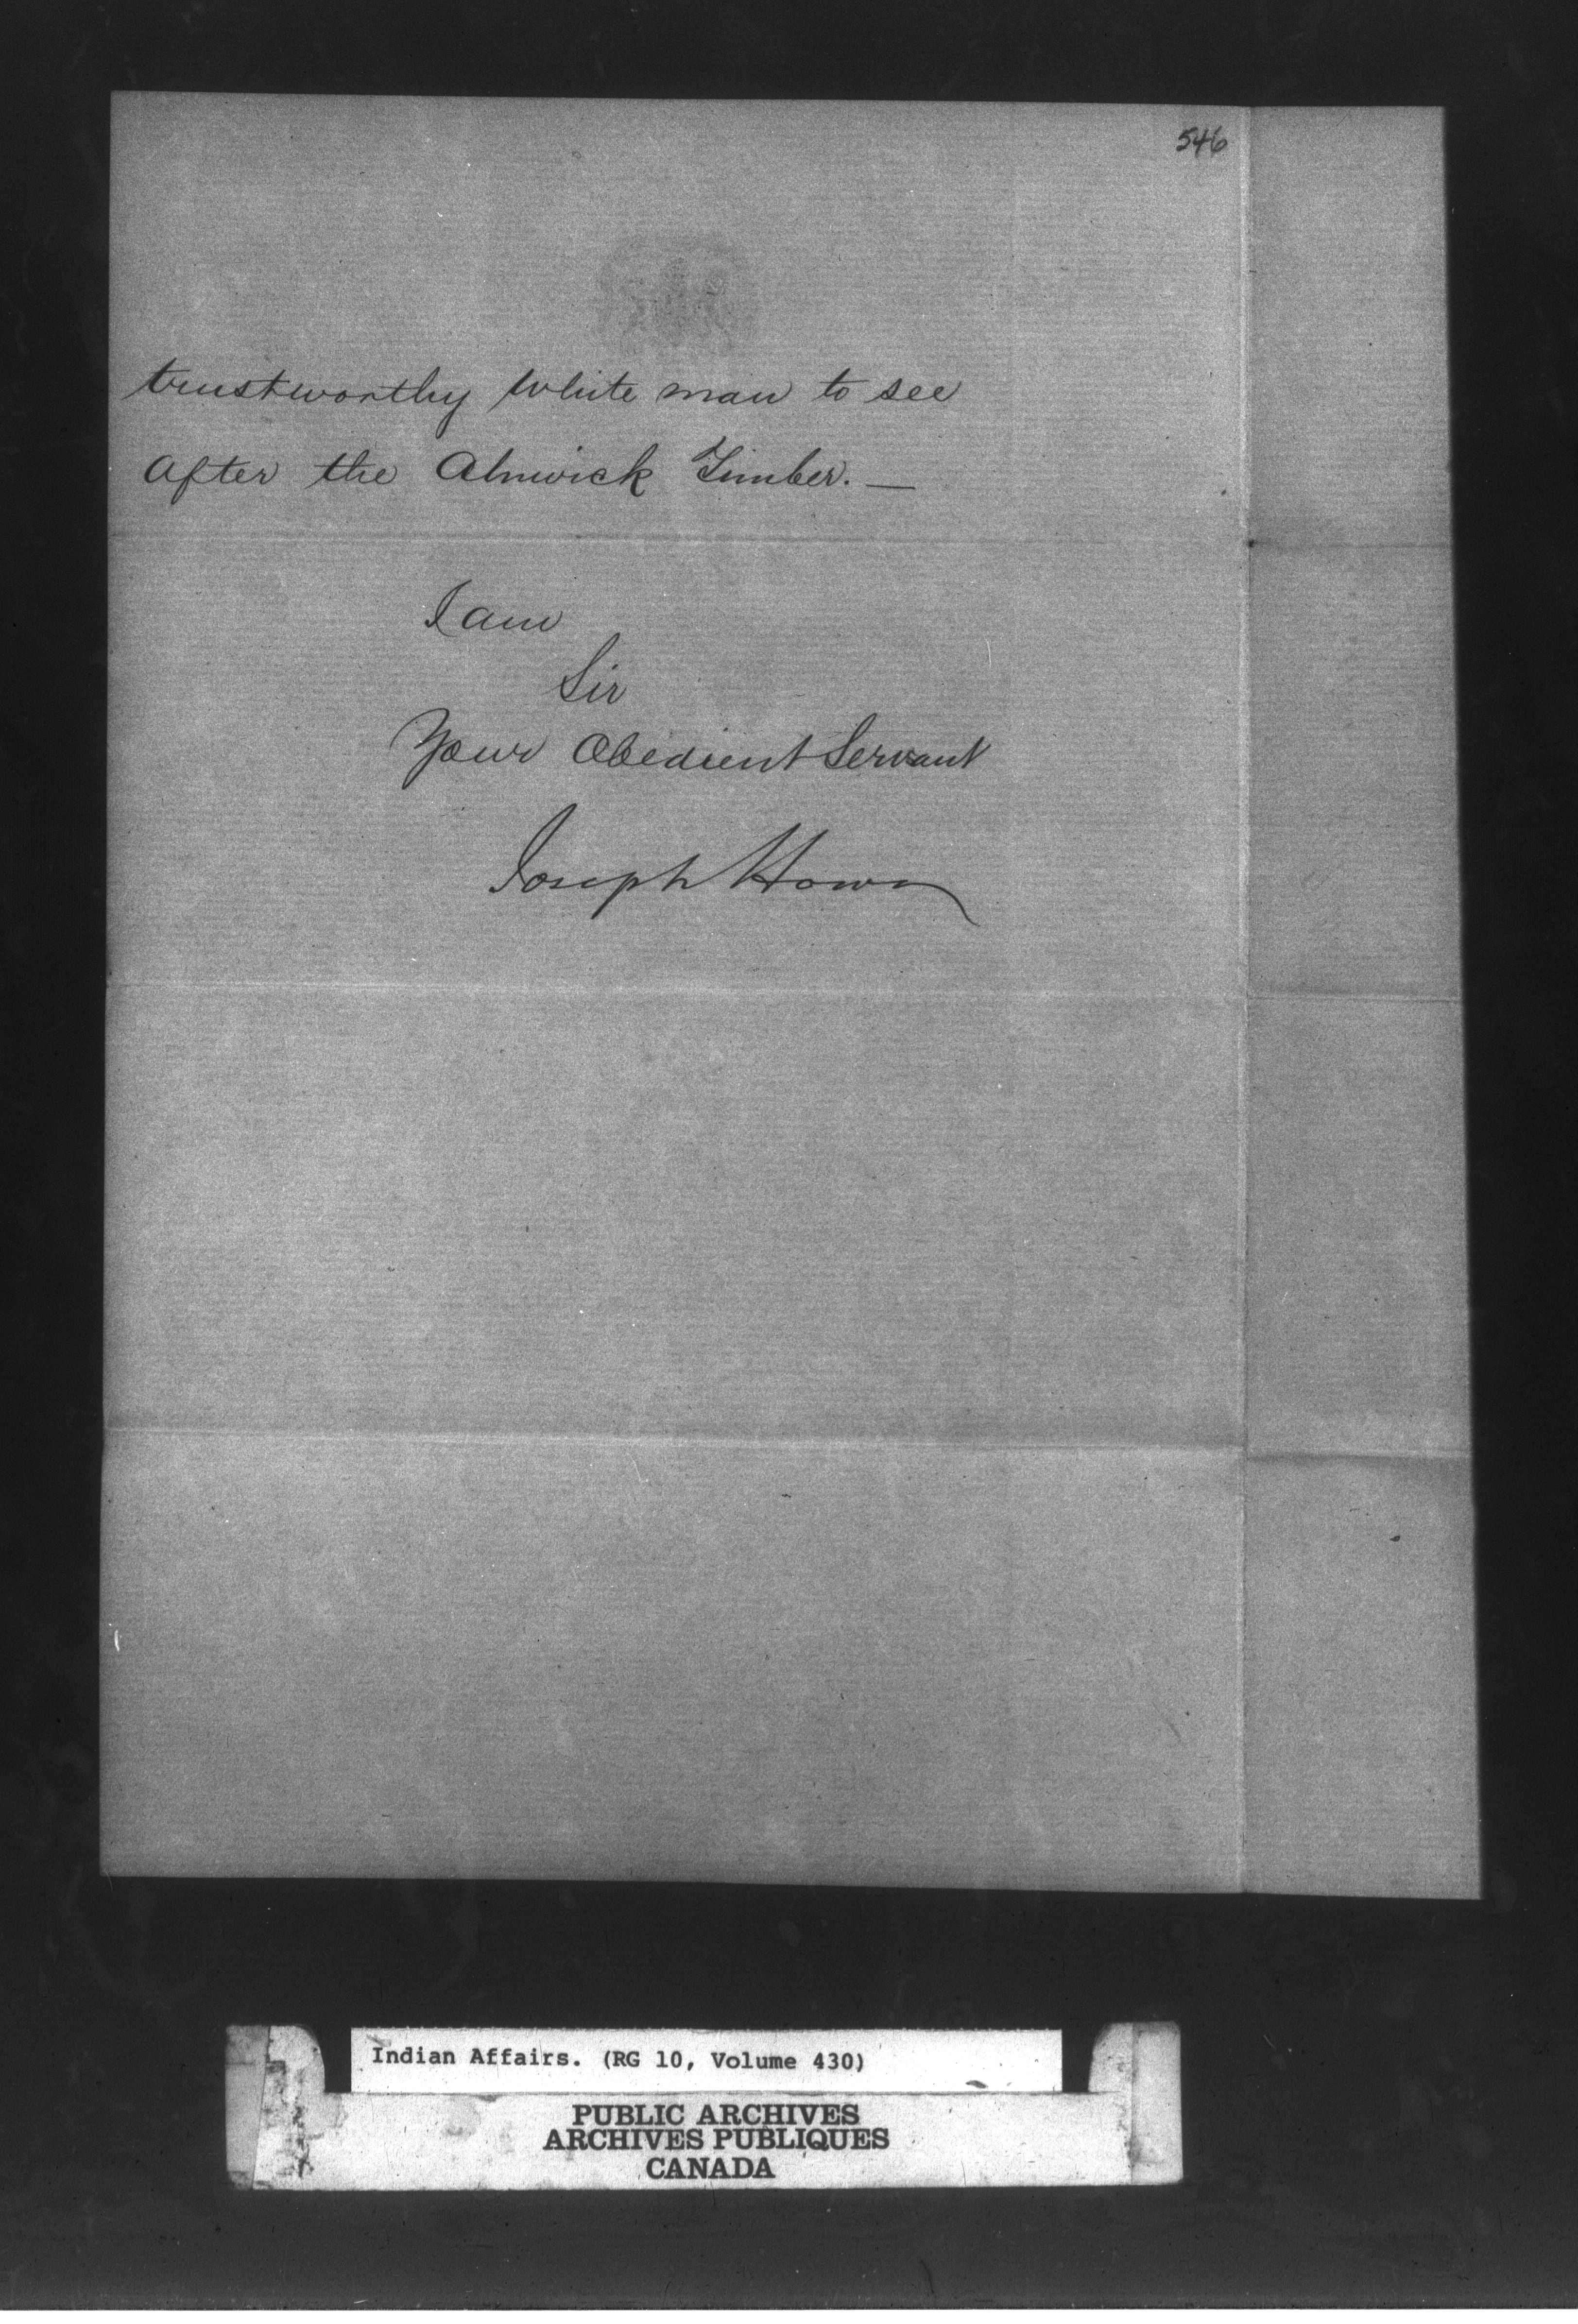 546
trustworthy White man to see
after the Alnwick Timber. —
I am
Sir
Your Obedient Servant
Joseph Howe
Indian Affairs. (RG 10, Volume 430)
PUBLIC ARCHIVES
ARCHIVES PUBLIQUES
CANADA